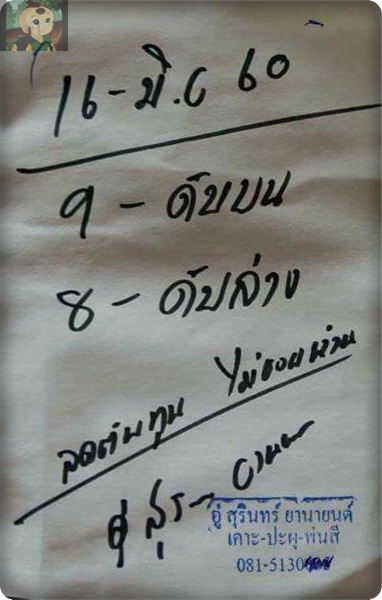 16 - มิ.ย 60
9 - ดับบน
8 - ดับล่าง
ลดต้นทุน ไม่
อู่ สุริ
อู่ สุรินทร์ ยานยนต์
เคาะ-ปะผุ-พ่นสี
081-5130